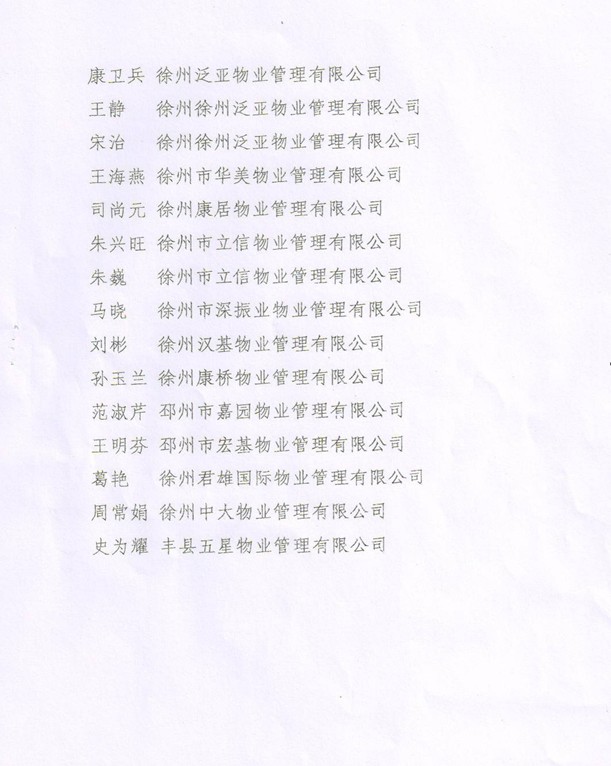 康卫兵 徐州泛亚物业管理有限公司
王静 徐州徐州泛亚物业管理有限公司
宋治 徐州徐州泛亚物业管理有限公司
王海燕 徐州市华美物业管理有限公司
司尚元 徐州康居物业管理有限公司
朱兴旺 徐州市立信物业管理有限公司
朱巍 徐州市立信物业管理有限公司
马晓 徐州市深振业物业管理有限公司
刘彬 徐州汉基物业管理有限公司
孙玉兰 徐州康桥物业管理有限公司
范淑芹 邳州市嘉园物业管理有限公司
王明芬 邳州市宏基物业管理有限公司
葛艳 徐州君雄国际物业管理有限公司
周常娟 徐州中大物业管理有限公司
史为耀 丰县五星物业管理有限公司